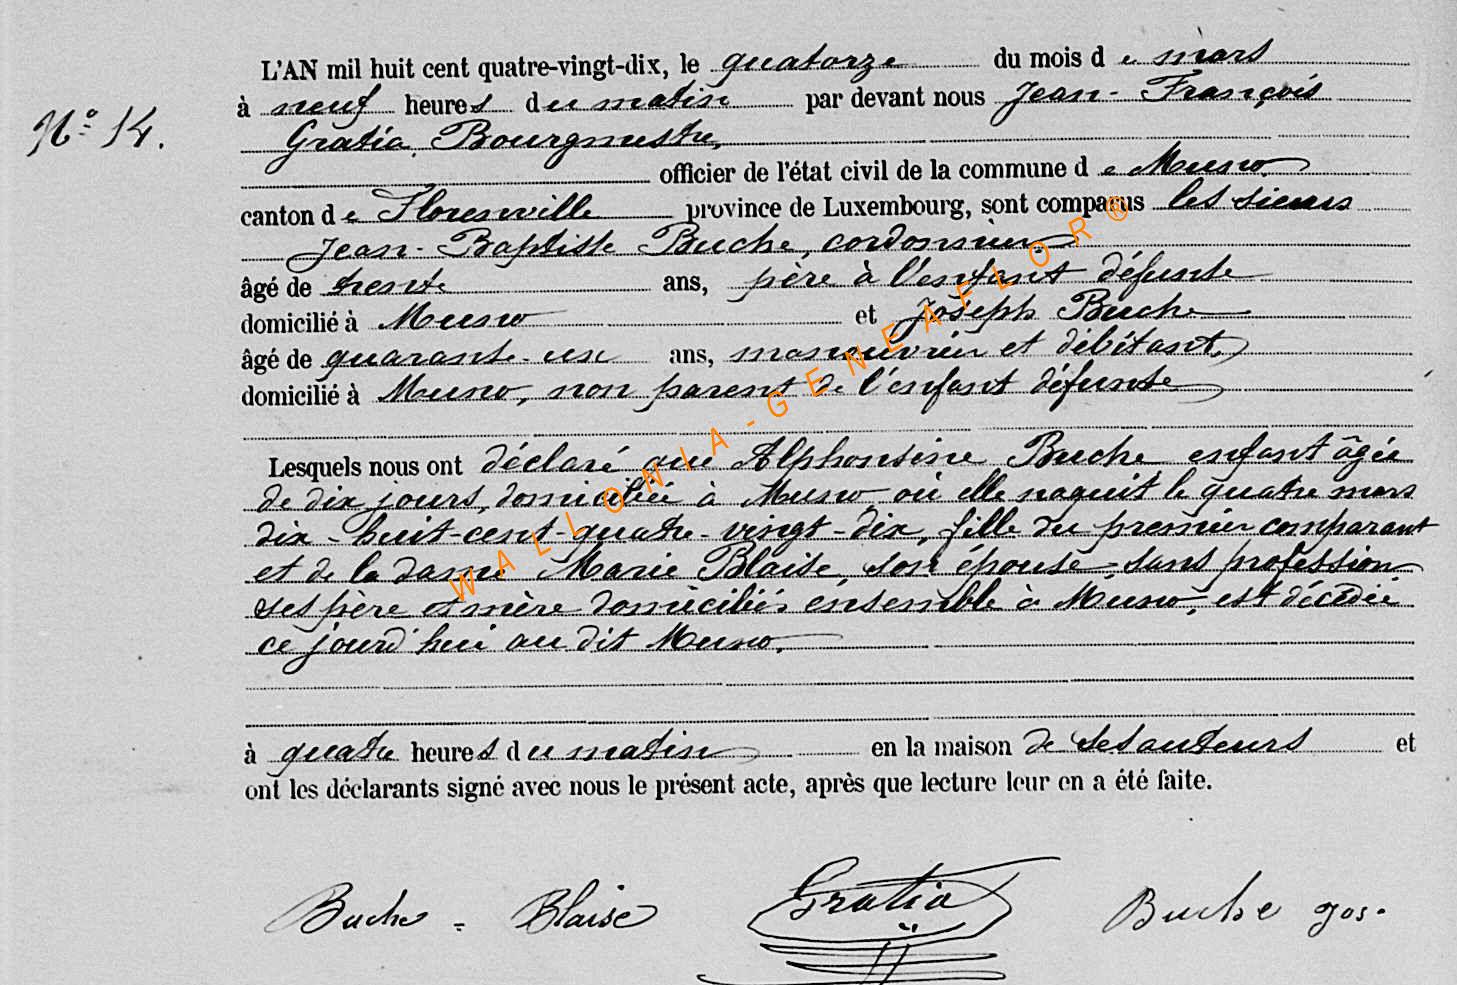 L'AN mil huit cent quatre-vingt-dix, le quatorze du mois de mars
à neuf heures du matin par devant nous Jean-François
N° 14.
Gratia, Bourgmestre,
officier de l'état civil de la commune de Muno,
canton de Florenville province de Luxembourg, sont comparus les sieurs
Jean-Baptiste Buche, cordonnier
âgé de trente ans, père à l'enfant défunte
domicilié à Muno et Joseph Buche
âgé de quarante-un ans, manouvrier et débitant,
domicilié à Muno, non parent de l'enfant défunte
Lesquels nous ont déclaré que Alphonsine Buche enfant âgée
de dix jours, domiciliée à Muno, où elle naquit le quatre mars
dix-huit-cent-quatre-vingt-dix, fille du premier comparant
et de la dame Marie Blaise, son épouse, sans profession
ses père et mère domiciliés ensemble à Muno, est décédée
ce jourd'hui au dit Muno,
à quatre heures du matin en la maison de ses auteurs et
ont les déclarants signé avec nous le présent acte, après que lecture leur en a été faite.
Buche - Blaise Gratia Buche Jos.
WALLONIA-GENEAFLOR®